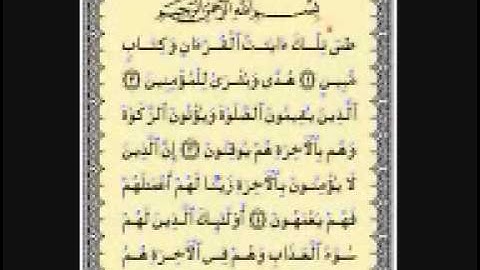 بِسْمِ اللَّهِ الرَّحْمَٰنِ الرَّحِيمِ
طسٓ تِلْكَ ءَايَٰتُ ٱلْقُرْءَانِ وَكِتَابٍ
مُّبِينٍ ١ هُدًى وَبُشْرَىٰ لِلْمُؤْمِنِينَ ٢
ٱلَّذِينَ يُقِيمُونَ ٱلصَّلَوٰةَ وَيُؤْتُونَ ٱلزَّكَوٰةَ
وَهُم بِٱلْءَاخِرَةِ هُمْ يُوقِنُونَ ٣ إِنَّ ٱلَّذِينَ
لَا يُؤْمِنُونَ بِٱلْءَاخِرَةِ زَيَّنَّا لَهُمْ أَعْمَٰلَهُمْ
فَهُمْ يَعْمَهُونَ ٤ أُو۟لَٰٓئِكَ ٱلَّذِينَ لَهُمْ
سُوٓءُ ٱلْعَذَابِ وَهُمْ فِى ٱلْءَاخِرَةِ هُمُ